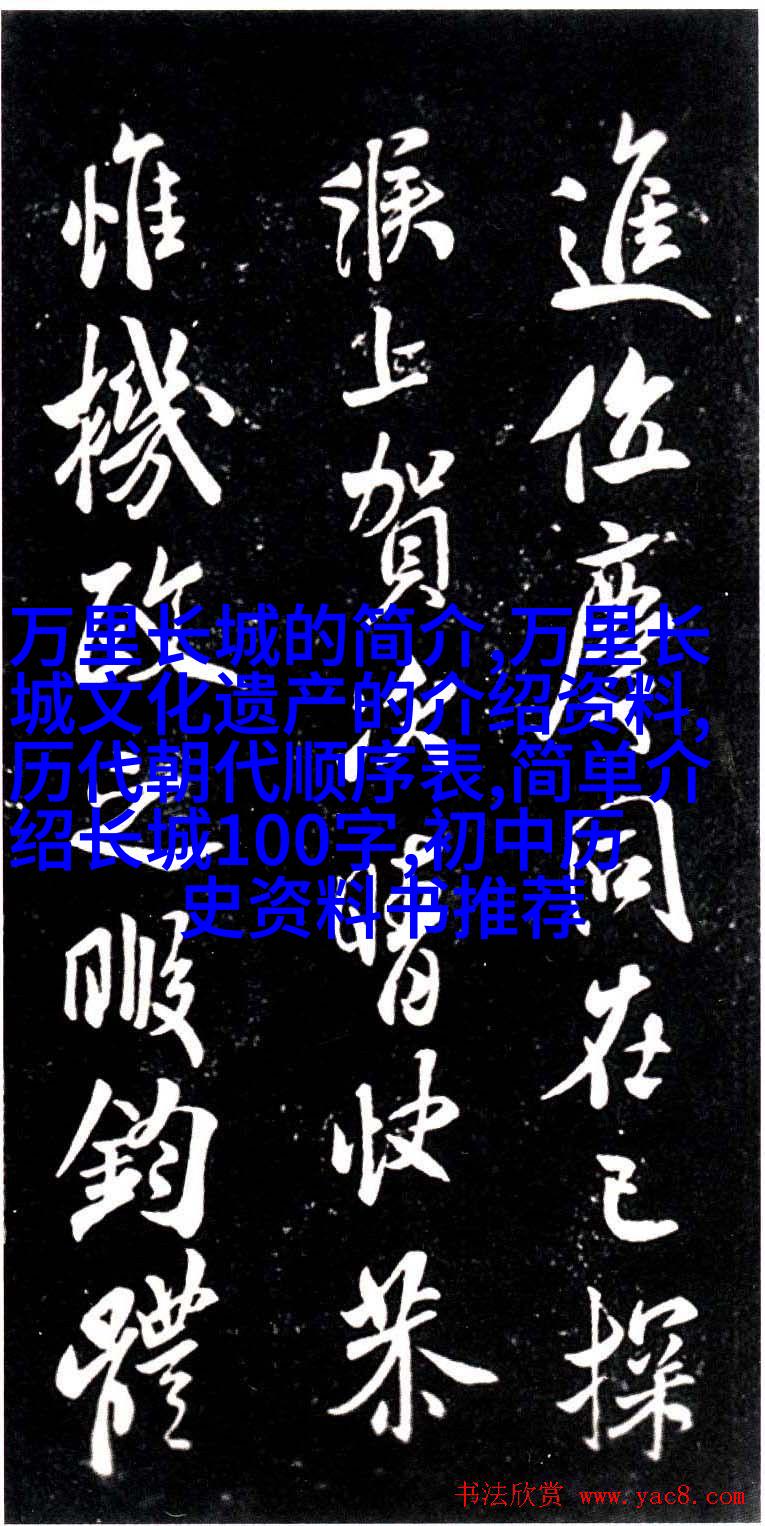 進位慶同在已探
候上賀次晴快恭
惟機政之暇鈞體
万里长城的简介,万里长
城文化遗产的介绍资料,
历代朝代顺序表,简单介
绍长城100字,初中历
史资料书推荐
书法欣赏 www.yac8.com